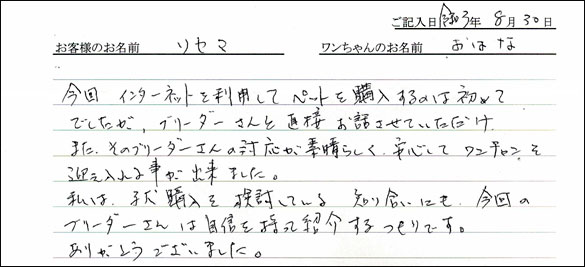 ご記入日 令和3年 8月 30日
お客様のお名前 リセマ ワンちゃんのお名前 おはな
今回 インターネットを利用して ペットを購入するのは初めて
でしたが、ブリーダーさんと直接お話させていただけ
また、そのブリーダーさんの対応が素晴らしく、安心して ワンチャンを
迎え入れる事が出来ました。
私は、子犬購入を検討している 知り合いにも、今回の
ブリーダーさんは自信を持って紹介するつもりです。
ありがとうございました。